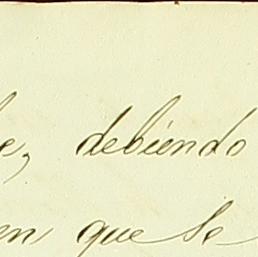 e, debiendo
en que se